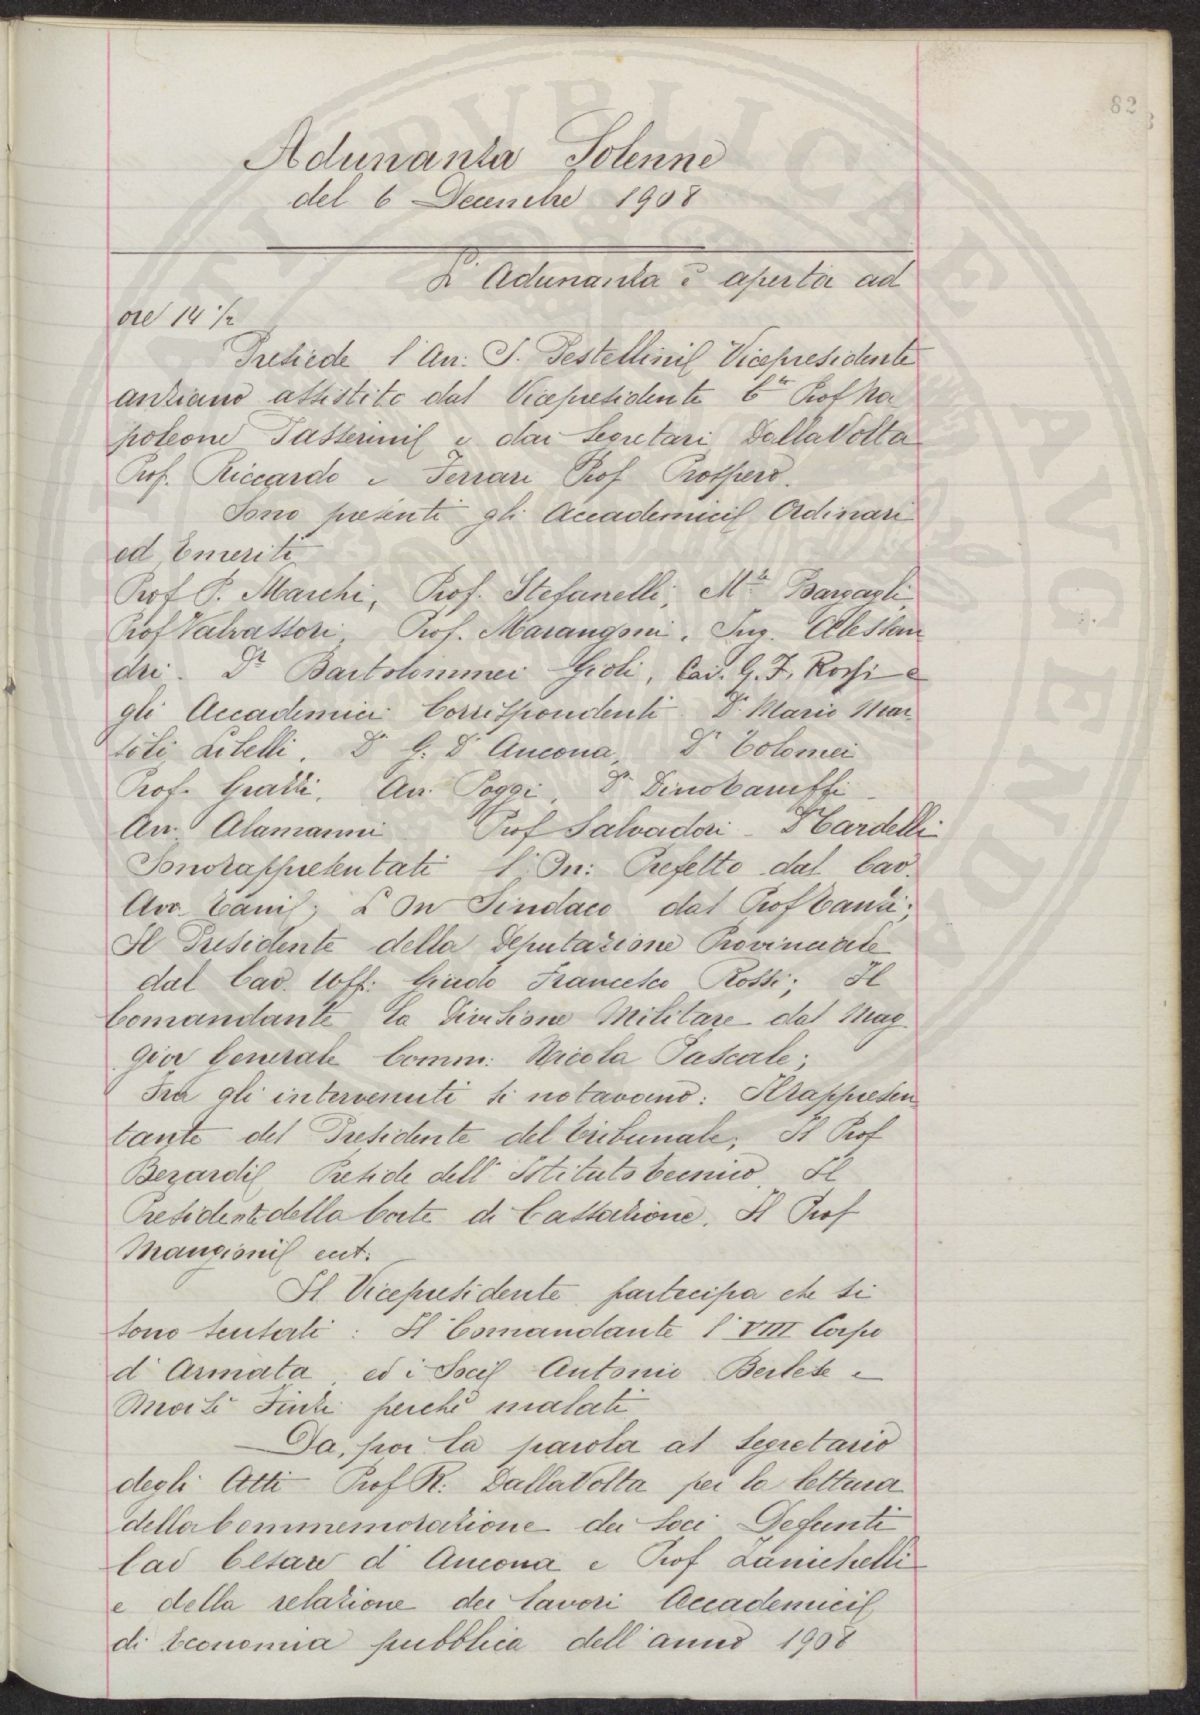 82
Adunanza Solenne
del 6 Decembre 1908
L'Adunanza è aperta ad
ore 14 1/2
Presiede l'Avv: S. Pestellini Vicepresidente
anziano assistito dal Vicepresidente Cte Prof Na
poleone Passerini e dai Segretari DallaVolta
Prof. Riccardo e Ferrari Prof Prospero.
Sono presenti gli Accademici Ordinari
ed Emeriti
Prof P. Marchi, Prof. Stefanelli, Mse Bargagli
Prof Valvassori, Prof. Marangoni, Ing. Alessan
dri. Dr Bartolommei Gioli, Cav. G. F. Rossi e
gli Accademici Corrispondenti Dr Mario Mar
sili Libelli, Dr G. D'Ancona, Dr Tolomei
Prof. Grazzi, Avv. Poggi, Dr Dino Taruffi
Avv. Alamanni Prof Salvadori - Dr Cardelli
Sono rappresentati l'On: Prefetto dal Cav.
Avv. Cani; L'On Sindaco dal Prof Canzi;
Il Presidente della Deputazione Provinciale
dal Cav. Uff: Guido Francesco Rossi; Il
Comandante la Divisione Militare dal Mag
gior Generale Comm: Nicola Pascale;
Fra gli intervenuti si notavano: Il rappresen
tante del Presidente del Tribunale; Il Prof
Bezardi Preside dell'Istituto tecnico, Il
Presidente della Corte di Cassazione, Il Prof
Mangioni ect:
Il Vicepresidente partecipa che si
sono scusati: Il Comandante l'VIII Corpo
d'Armata, ed i Soci Antonio Berlese e
Moisè Finzi perchè malati
Da, poi la parola al Segretario
degli Atti Prof R: DallaVolta per la lettura
della Commemorazione dei Soci Defunti
Cav Cesare d'Ancona e Prof Zanichelli
e della relazione dei lavori Accademici
di Economia pubblica dell'anno 1908